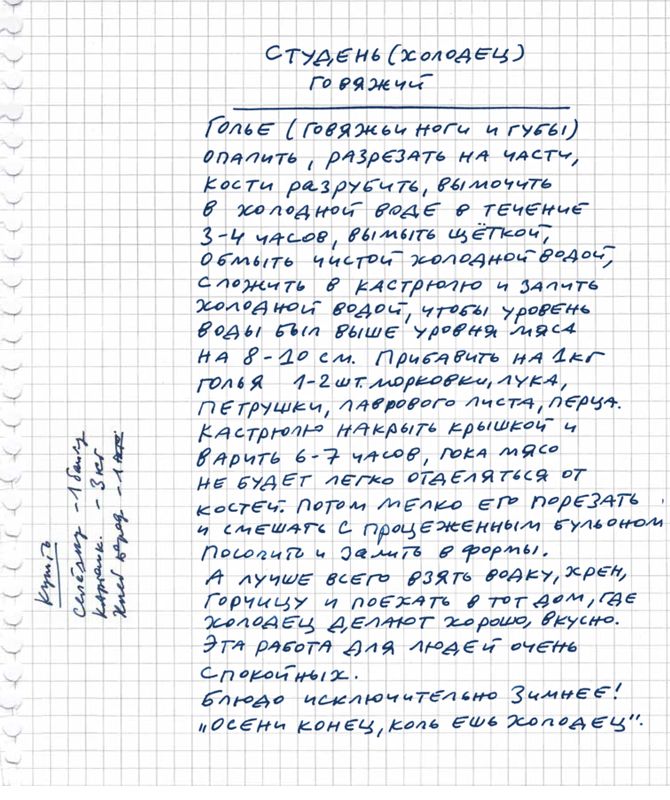 СТУДЕНЬ (ХОЛОДЕЦ)
ГОВЯЖИЙ
ГОЛЬЕ (ГОВЯЖЬИ НОГИ И ГУБЫ)
ОПАЛИТЬ, РАЗРЕЗАТЬ НА ЧАСТИ,
КОСТИ РАЗРУБИТЬ, ВЫМОЧИТЬ
В ХОЛОДНОЙ ВОДЕ В ТЕЧЕНИЕ
3-4 ЧАСОВ, ВЫМЫТЬ ЩЁТКОЙ,
ОБМЫТЬ ЧИСТОЙ ХОЛОДНОЙ ВОДОЙ,
СЛОЖИТЬ В КАСТРЮЛЮ И ЗАЛИТЬ
ХОЛОДНОЙ ВОДОЙ, ЧТОБЫ УРОВЕНЬ
ВОДЫ БЫЛ ВЫШЕ УРОВНЯ МЯСА
НА 8-10 СМ. ПРИБАВИТЬ НА 1КГ
ГОЛЬЯ 1-2 ШТ. МОРКОВКИ, ЛУКА,
ПЕТРУШКИ, ЛАВРОВОГО ЛИСТА, ПЕРЦА.
КАСТРЮЛЮ НАКРЫТЬ КРЫШКОЙ И
ВАРИТЬ 6-7 ЧАСОВ, ПОКА МЯСО
НЕ БУДЕТ ЛЕГКО ОТДЕЛЯТЬСЯ ОТ
КОСТЕЙ. ПОТОМ МЕЛКО ЕГО ПОРЕЗАТЬ
И СМЕШАТЬ С ПРОЦЕЖЕННЫМ БУЛЬОНОМ
ПОСОЛИТЬ И ЗАЛИТЬ В ФОРМЫ.
А ЛУЧШЕ ВСЕГО ВЗЯТЬ ВОДКУ, ХРЕН,
ГОРЧИЦУ И ПОЕХАТЬ В ТОТ ДОМ, ГДЕ
ХОЛОДЕЦ ДЕЛАЮТ ХОРОШО, ВКУСНО.
ЭТА РАБОТА ДЛЯ ЛЮДЕЙ ОЧЕНЬ
СПОКОЙНЫХ.
БЛЮДО ИСКЛЮЧИТЕЛЬНО ЗИМНЕЕ!
„ОСЕНИ КОНЕЦ, КОЛЬ ЕШЬ ХОЛОДЕЦ".
Купить
Селёдку - 1 банку
Картошк. - 3 кг
Хлеб - 1